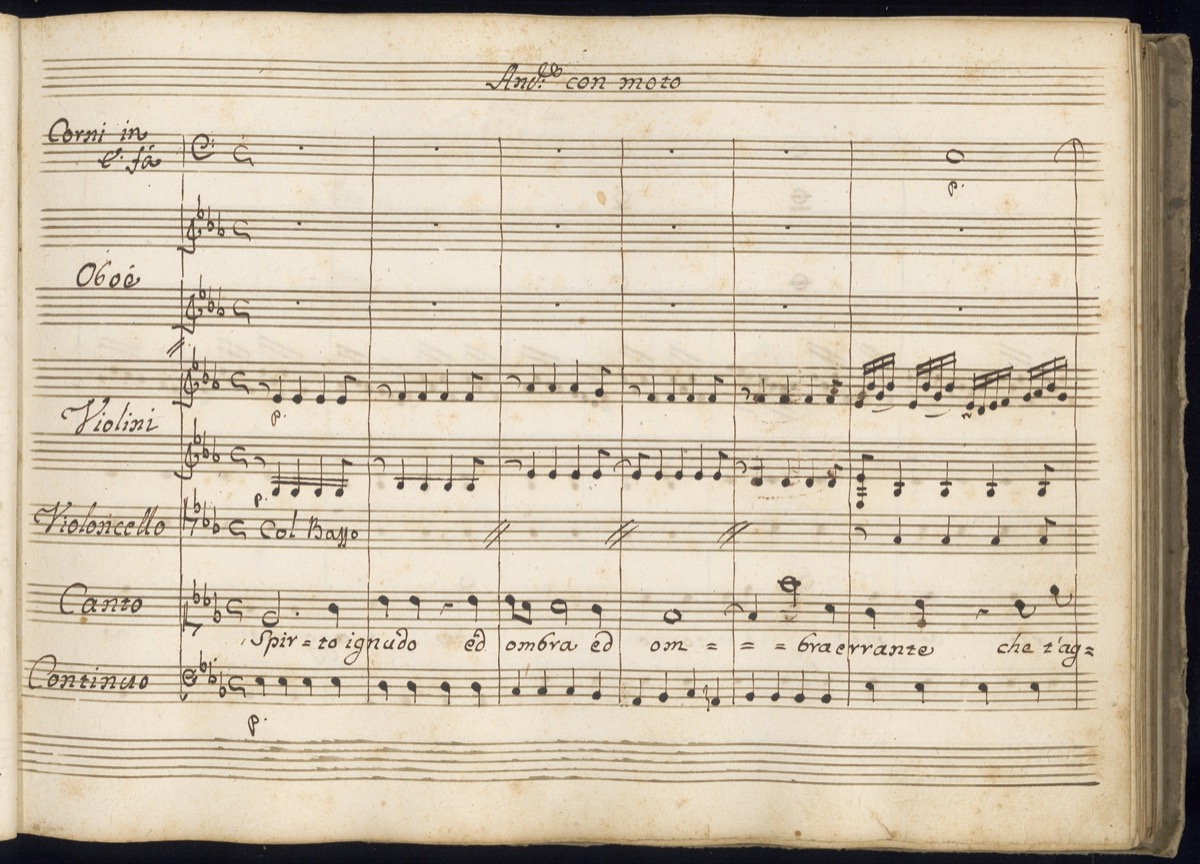 And.^te con moto
Corni in
E. fá
p.
Oboè
p.
Violini
p.
Violoncello Col Basso
Canto
Spir=to ignudo ed ombra ed om = = = bra errante che t'ag=
Continuo
p.